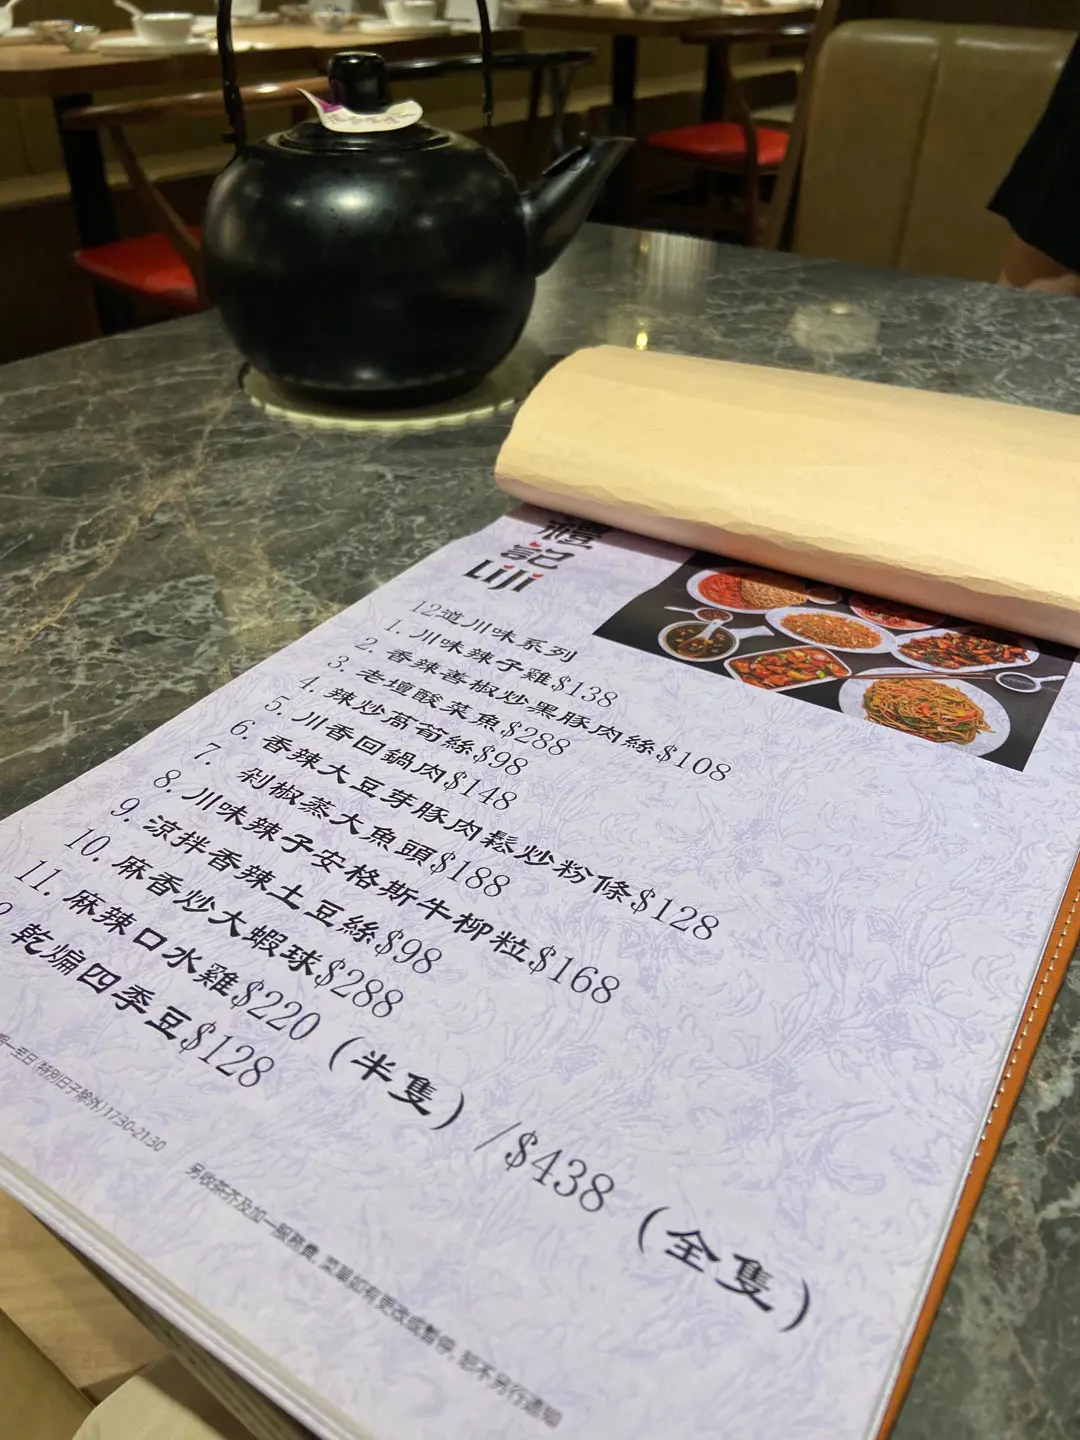 禮
記
LiJi
12道川味系列
1. 川味辣子雞$138
2. 香辣善椒炒黑豚肉絲$108
3. 老壇酸菜魚$288
4. 辣炒萵筍絲$98
5. 川香回鍋肉$148
6. 香辣大豆芽豚肉鬆炒粉條$128
7. 剁椒蒸大魚頭$188
8. 川味辣子安格斯牛柳粒$168
9. 涼拌香辣土豆絲$98
10. 麻香炒大蝦球$288
11. 麻辣口水雞$220 (半隻) /$438 (全隻)
乾煸四季豆$128
一至日 (特別日子除外) 17:30-21:30
另收茶芥及加一服務費, 菜單如有更改或暫停, 恕不另行通知